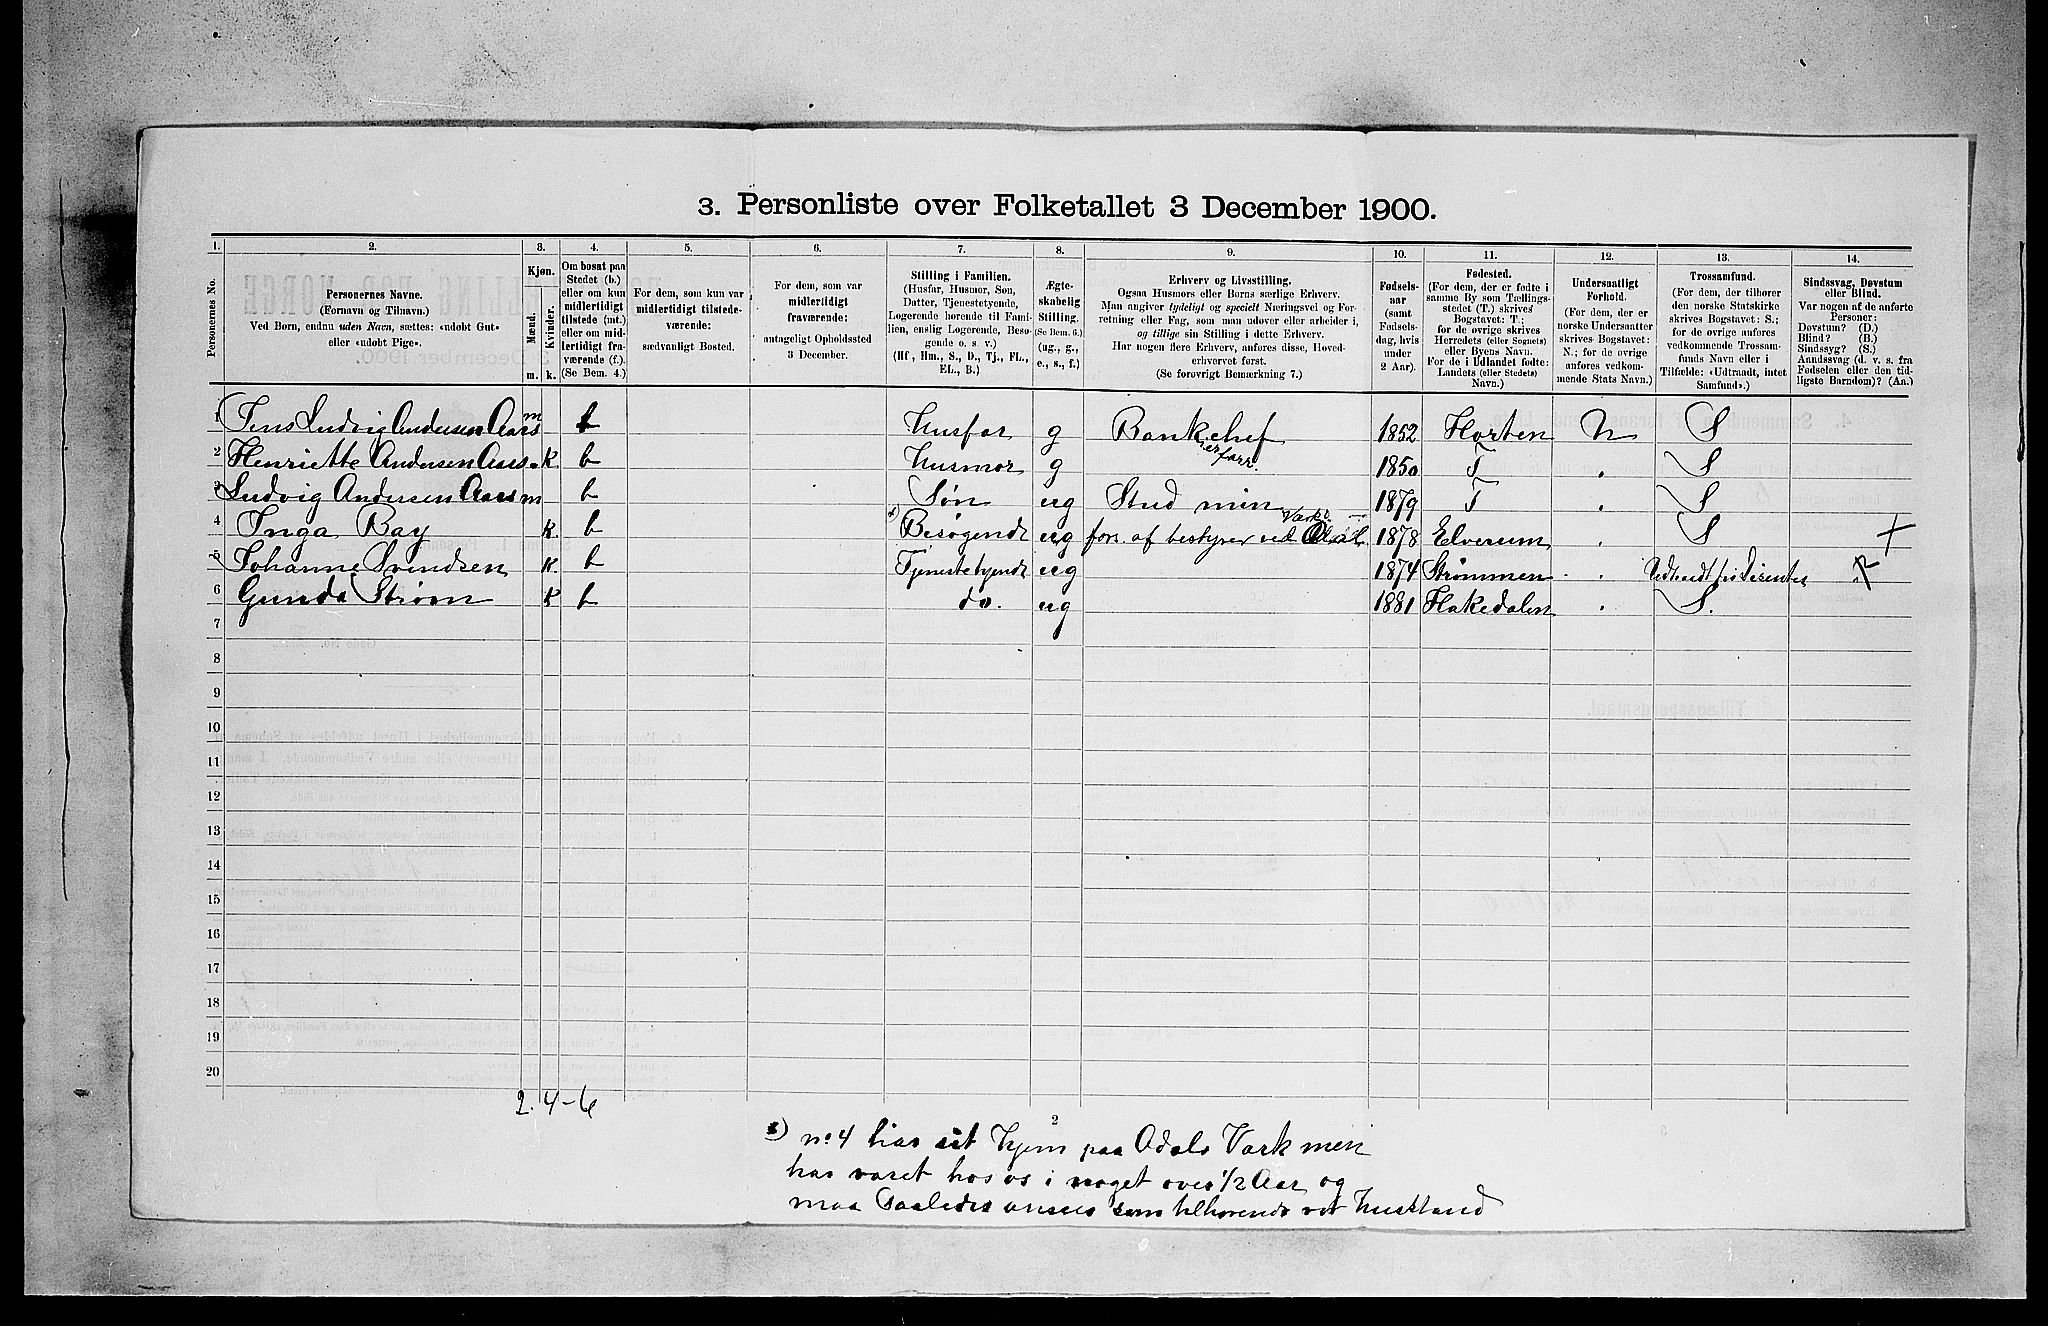 3. Personliste over Folketallet 3 December 1900.
1. 2. 3. 4. 5. 6. 7. 8. 9. 10. 11. 12. 13. 14.
Personernes No.
Personernes Navne.
(Fornavn og Tilnavn.)
Ved Børn, endnu uden Navn, sættes: «udøbt Gut»
eller «udøbt Pige».
Kjøn.
Mænd.
Kvinder.
m. k.
Om bosat paa
Stedet (b.)
eller om kun
midlertidigt
tilstede (mt.)
eller om mid-
lertidigt fra-
værende (f.).
(Se Bem. 4.)
For dem, som kun var
midlertidigt tilstede-
værende:
sædvanligt Bosted.
For dem, som var
midlertidigt
fraværende:
antageligt Opholdssted
3 December.
Stilling i Familien.
(Husfar, Husmor, Søn,
Datter, Tjenestetyende,
Logerende hørende til Fami-
lien, enslig Logerende, Besø-
gende o. s. v.)
(Hf., Hm., S., D., Tj., FL.,
EL., B.)
Ægte-
skabelig
Stilling.
(Se Bem. 6.)
(ug., g.,
e., s., f.)
Erhverv og Livsstilling.
Ogsaa Husmors eller Børns særlige Erhverv.
Man angiver tydeligt og specielt Næringsvei og For-
retning eller Fag, som man udøver eller arbeider i,
og tillige sin Stilling i dette Erhverv.
Har nogen flere Erhverv, anføres disse, Hoved-
erhvervet først.
(Se forøvrigt Bemærkning 7.)
Fødsels-
aar
(samt
Fødsels-
dag, hvis
under
2 Aar).
Fødested.
(For dem, der er fødte i
samme By som Tællings-
stedet (T.) skrives
Bogstavet: T.;
for de øvrige skrives
Herredets (eller Sognets)
eller Byens Navn.
For de i Udlandet fødte:
Landets (eller Stedets)
Navn.)
Undersaatligt
Forhold.
(For dem, der er
norske Undersaatter
skrives Bogstavet:
N.; for de øvrige
anføres vedkom-
mende Stats Navn.)
Trossamfund.
(For dem, der tilhører
den norske Statskirke
skrives Bogstavet: S.;
for de øvrige anføres
vedkommende Trossam-
funds Navn eller i
Tilfælde: «Udtraadt, intet
Samfund».)
Sindssvag, Døvstum
eller Blind.
Var nogen af de anførte
Personer:
Døvstum? (D.)
Blind? (B.)
Sindssyg? (S.)
Aandssvag (d. v. s. fra
Fødselen eller den tid-
ligste Barndom)? (Aa.)
1 Jens Ludvig Andersen Aars m b Husfar g Bankchef 1852 Horten N S
2 Henriette Andersen Aars. K. b Husmor g 1850 T . S
3 Ludvig Andersen Aars m b Søn ug Stud min 1879 T . S
4 Inga Bay K. b Besøgende ug fors. af bestyrer ved 1878 Elverum . S +
5 Johanne Svendsen K. b Tjenestetyende ug 1874 Strømmen . .
6 Gunda Strøm K b do. ug 1881 Hakedalen . S.
7
8
9
10
11
12
13
14
15
16
17
18
19
20
2. 4-6
2
no. 4 har sit hjem paa Odals Værk men
har været hos os i noget over 1/2 Aar og
maa saaledes ansees som tilhørende vor husstand